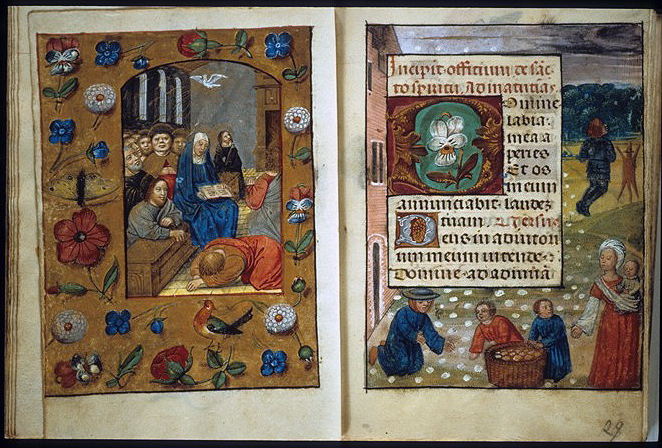 Incipit officium de sāc
to spiritu. Ad matutīas.
Domine
labia
mea a
peries
Et os
meum
annunciabit laudez
tuam. Versus
Deus in adiutori
um meum intende
Domine ad adiuuā
29